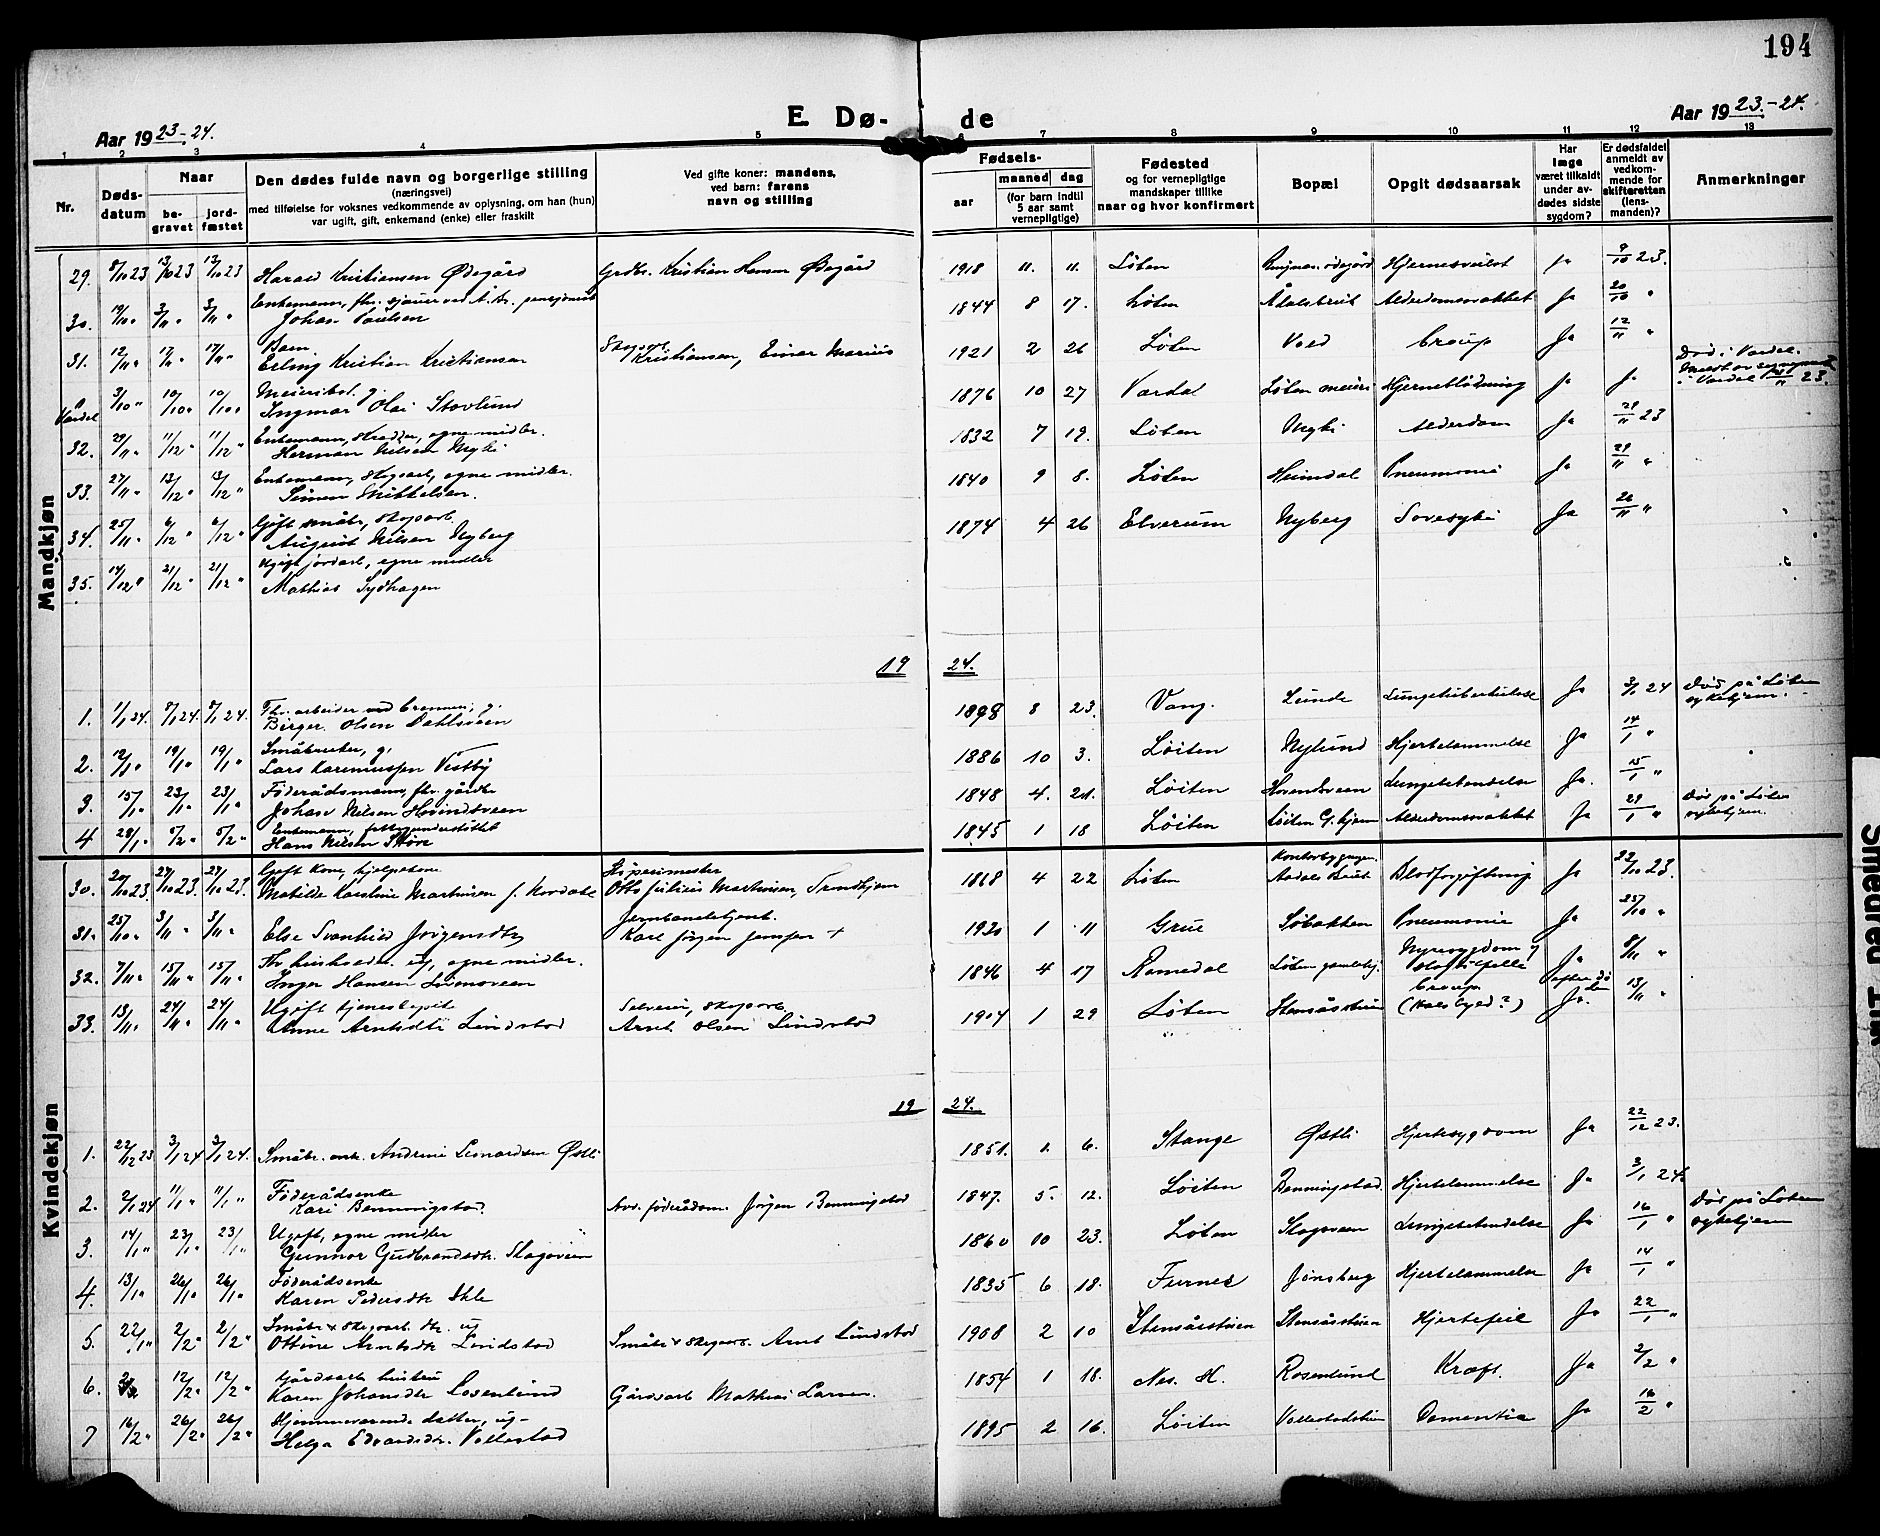 194
E. Dø-
de
Aar 1923-24.
Aar 1923-24.
1 2 3 4 5 6 7 8 9 10 11 12 13
Nr.
Døds-
datum
Naar
be-
gravet
jord-
fæstet
Den dødes fulde navn og borgerlige stilling
(næringsvei)
med tilføielse for voksnes vedkommende av oplysning, om han (hun)
var ugift, gift, enkemand (enke) eller fraskilt
Ved gifte koner: mandens,
ved barn: farens
navn og stilling
Fødsels-
aar
maaned dag
(for barn indtil
5 aar samt
vernepligtige)
Fødested
og for vernepligtige
mandskaper tillike
naar og hvor konfirmert
Bopæl
Opgit dødsaarsak
Har
læge
været tilkaldt
under av-
dødes sidste
sygdom?
Er dødsfaldet
anmeldt av
vedkom-
mende for
skifteretten
(lens-
manden)?
Anmerkninger
Mandkjøn
29. 8/10 23 13/10 23 13/10 23 Harald Kristiansen Ødegård Grdbr. Kristian Hemm Ødegård 1918 11. 11. Løten Hjernesvulst Ja 9/10 23.
Enkemann, fhv. sjauer ved
30. 19/10 " 3/11 " 3/11 " Johan Paulsen 1844 8 17. Løten Ådalsbruk Alderdomssvakhet Ja 20/10 "
Barn Skogsarb.
31. 12/11 " 17/11 " 17/11 " Erling Kristian Kristiansen Kristiansen, Einar Marius 1921 2 26 Løten Vold Croup Ja 12/11 "
Død i Vardal.
Meieribest. g.
Vardal 3/10 " 10/10 " 10/10 " Ingmar Olai Stovlund 1876 10 27 Vardal Løten meieri Hjerneblødning Ja Ja i Vardal 23.
Enkemann, Skredder, egne midler.
32. 29/11 " 11/12 " 11/12 " Herman Nilsen Nyki 1832 7 19. Løten Nyki Alderdom Ja 29/11 23
Enkemann, Skogsarb, egne midler.
33. 27/11 " 13/12 " 13/12 " Simen Mikkelsen. 1840 9 8. Løten Heimdal Pneumonie Ja 29/11 "
Gift småbr., skogsarb.
34. 25/11 " 6/12 " 6/12 " August Nilsen Nyberg 1874 4 26 Elverum Nyberg Sovesyke Ja 26/11 "
jordarb, egne midler
35. 14/12 " 21/12 " 21/12 " Mathias Sydhagen
19 24.
Fhv. arbeider ved brenneri, g.
1. 1/1 24. 8/1 24. 8/1 24. Birger Olsen Dahlsveen 1898 8 23. Vang. Lunde Lungetuberkulose Ja 3/1 24 Død på Løten
sykehjem.
Småbruker, g.
2. 12/1 " 19/1 " 19/1 " Lars Karenussen Vestby 1886 10 3. Løiten Nylund Hjertelammelse Ja 14/1 "
Föderådsmann, fhv. gårdbr
3. 15/1 " 23/1 " 23/1 " Johan Nilsen Hovindsveen 1848 4. 21. Løiten Hovendsveen Lungebetendelse Ja. 15/1 "
Enkemann, fattigunderstöttet
4 28/1 " 5/2 " 5/2 " Hans Nilsen Støre 1845 1 18 Løiten Løiten G.hjem Alderdomssvakhet Ja 29/1 " Død på Løten
sykehjem.
Kvindekjøn
Gift Kone, hjelpetrene
30. 20/10 23 27/10 23. 27/10 23 Matilde Karoline Martinsen f. Nordahl Otto Julius Martinsen, Trondhjem 1868 4 22 Løten Kontorbygningen Aadals Bruk Blodforgiftning Ja 22/10 23.
Jernbanebetjent.
31. 25/10 " 3/11 " 3/11 " Else Svanhild Jörgensdtr Karl Jörgen Jensen + 1920 1 11 Grue Søbakken Pneumonie Ja 25/10 "
Fhv. husholder. ug, egne midler. Nyresygdom
32. 7/11 " 15/11 " 15/11 " Inger Hansen Simensveen 1846 4 17 Romedal Løten gamlehj. slagtilfelle Ja 8/11 "
Ugift tjenestepike Selveier, skogsarb. Croup
33. 13/11 " 24/11 " 24/11 " Anne Arntsdtr Lindstad Arnt Olsen Lindstad 1904 1 29 Løten Stensåsstuen (Halsbyld?) Ja. 13/11 "
19 24.
1. 22/12 23 3/1 24 3/1 24. Småbr. enke Andrine Leonardsen Østli 1851. 1. 6. Stange Østli Hjertesygdom Ja 22/12 23.
Föderådsenke
2. 2/1 24 11/1 " 11/1 " Kari Benningstad. Avd. föderådsm. Jörgen Benningstad 1847. 5. 12. Løiten Benningstad Hjertelammelse Ja 3/1 24.
Ugift, egne midler Død på Løten
3. 14/1 " 23/1 " 23/1 " Gunnor Gudbrandsdtr. Skogsveen 1860 10 23. Løten Skogsveen Lungebetendelse Ja 16/1 " sykehjem
Föderådsenke
4. 13/1 " 26/1 " 26/1 " Karen Pedersdtr Skle 1835 6 18. Furnes Jönsberg Hjertelammelse Ja 14/1 "
Småbr + skogsarb. dtr. ug
5. 22/1 " 2/2 " 2/2 " Ottine Arntsdtr Lindstad Småbr + skogsarb. Arnt Lindstad 1908 2 10 Stensåsstuen Stensåsstuen Hjertefeil Ja 22/1 "
Gårdsarb. hustru
6. 2/2 12/2 " 12/2 " Karen Johansdtr Rosenlund Gårdsarb Mathias Larsen. 1854 1 18. Nes. H. Rosenlund Kræft. Ja 2/2 "
Hjemmeværende datter, ug-
7 16/2 " 26/2 " 26/2 " Helga Edvardsdtr. Vollestad 1895 2 16. Løiten Vollestadstuen Dementia Ja 16/2 "